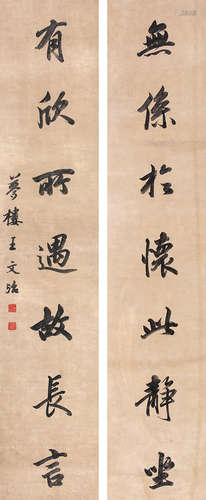 無係於懷此靜坐
有欣所遇故長言
夢樓王文治